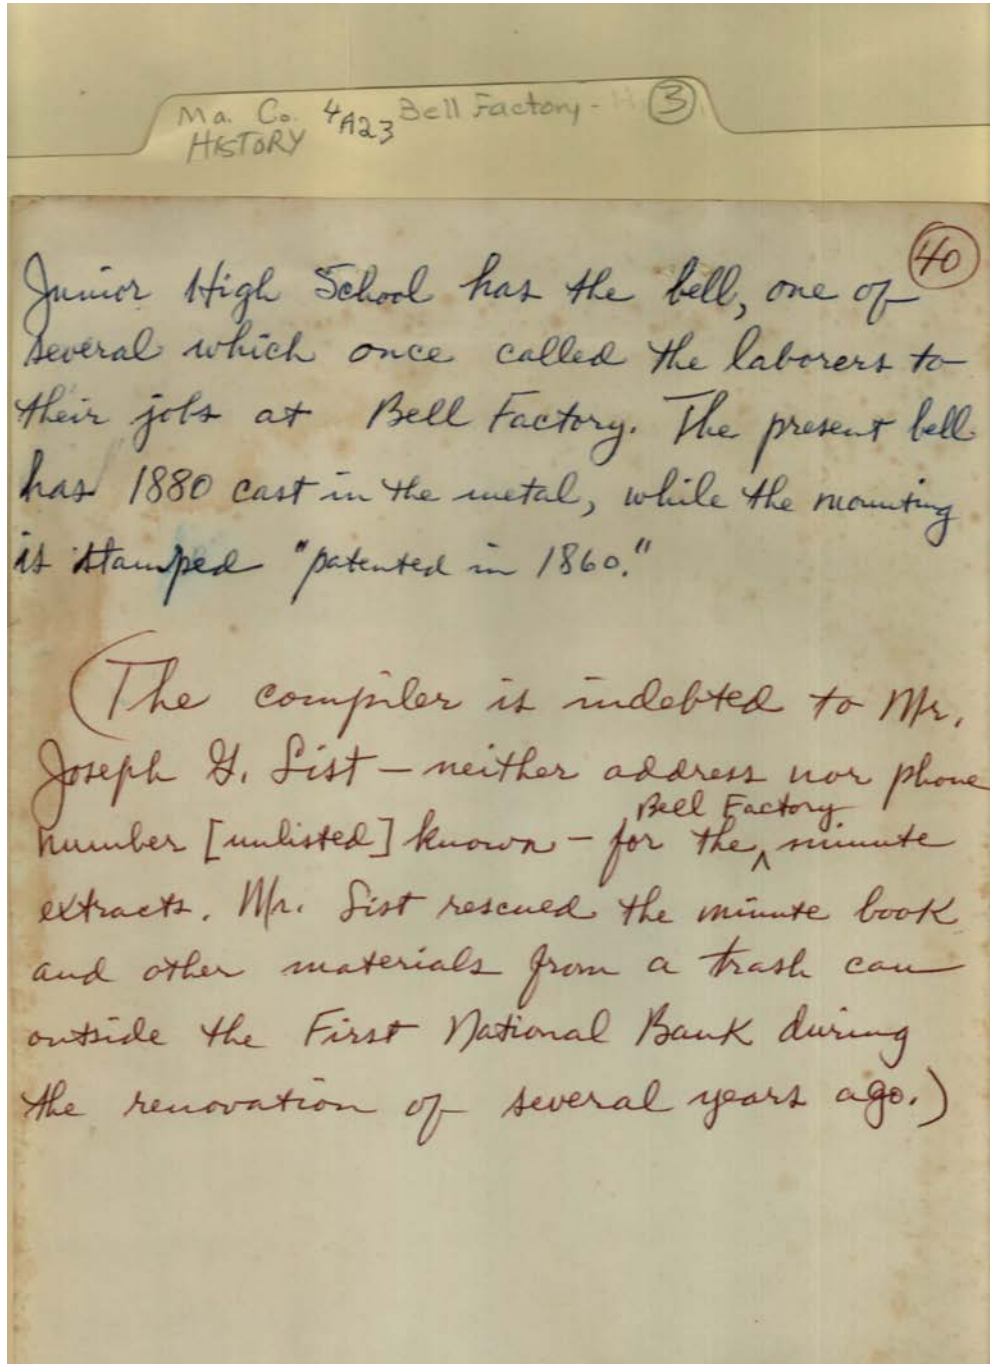 Ma. Co. 4A23 Bell Factory - 3
HISTORY
40
Junior High School has the bell, one of
several which once called the laborers to
their jobs at Bell Factory. The present bell
has 1880 cast in the metal, while the mounting
is stamped "patented in 1860."
(The compiler is indebted to Mr.
Joseph G. List – neither address nor phone
Bell Factory
number [unlisted] known – for the ^ minute
extracts. Mr. List rescued the minute book
and other materials from a trash can
outside the First National Bank during
the renovation of several years ago.)